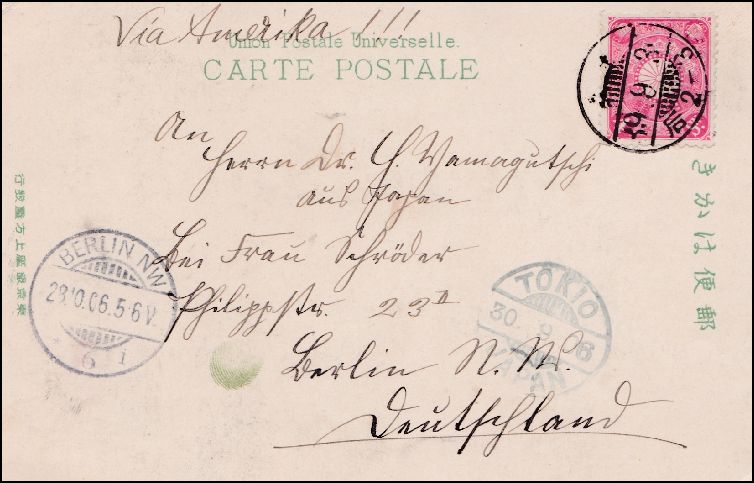 Via Amerika !!!
Union Postale Universelle.
CARTE POSTALE
An
Herrn Dr. H. Yamagutschi
aus Japan
bei Frau Schröder
Philippstr. 23 II
Berlin N. W.
Deutschland
BERLIN NW
28.10.06.5-6V.
* 6 i
TOKIO
30 9 6
JAPAN
郵便はかき